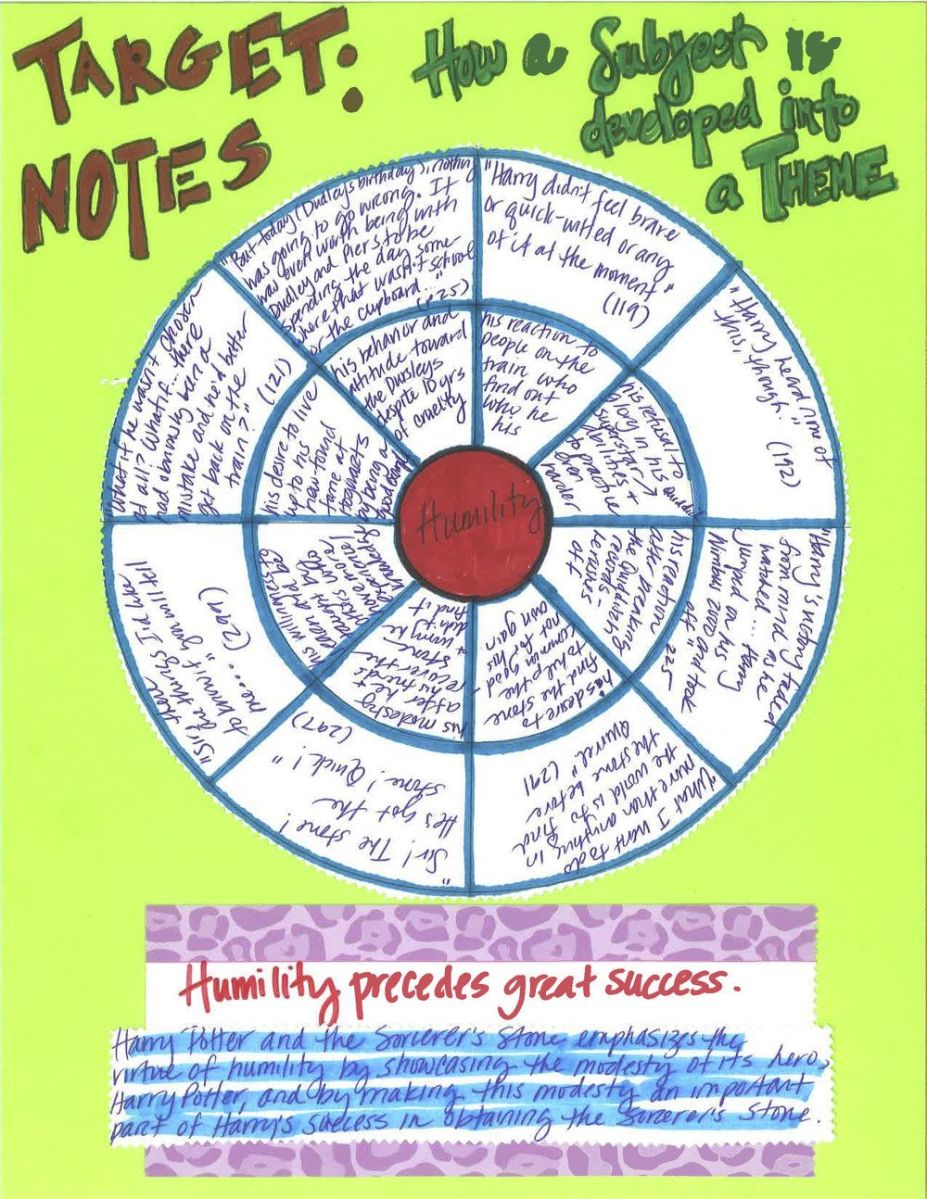 TARGET:
NOTES
How a Subject is
developed into
a THEME
"But today (Dudley's birthday), nothing
was going to go wrong. It
was even worth being with
Dudley and Piers to be
spending the day some
where that wasn't school
or the cupboard..."
(P25)
"Harry didn't feel brave
or quick-witted or any
of it at the moment"
(119)
"Harry heard none of
this, though." (192)
Harry's victory faded
from mind as he
watched.... Harry
jumped on his
Nimbus 2000 and took
off." 225
"What I want to do
more than anything in
the world is to find
the stone before
Quirrel" (291
"Sir! The stone!
He's got the
stone! Quick!"
(297)
"Sir, there
are things I'd like
to know, if you will tell
me...." (299)
What if he wasn't chosen
at all? What if... there
had obviously been a
mistake and he'd better
get back on the
train?" (121)
his behavior and
attitude toward
the Dursleys
despite 10 yrs
of cruelty
his reaction to
people on the
train who
find out
who he
his
his refusal to
revel in his
superstar
abilities +
to practice
even
harder
his reaction
after breaking
the Quidditch
records -
he runs
off
his desire to
find the stone
to help the
common good -
not for his
own gain.
his modesty
after he +
his friends
recover the
stone
his willingness
to
his desire to live
up to his
new found
fame at
Hogwarts
by being a
good
Humility
Humility precedes great success.
Harry Potter and the Sorcerer's Stone emphasizes the
virtue of humility by showcasing the modesty of its hero,
Harry Potter, and by making this modesty an important
part of Harry's success in obtaining the Sorcerer's Stone.